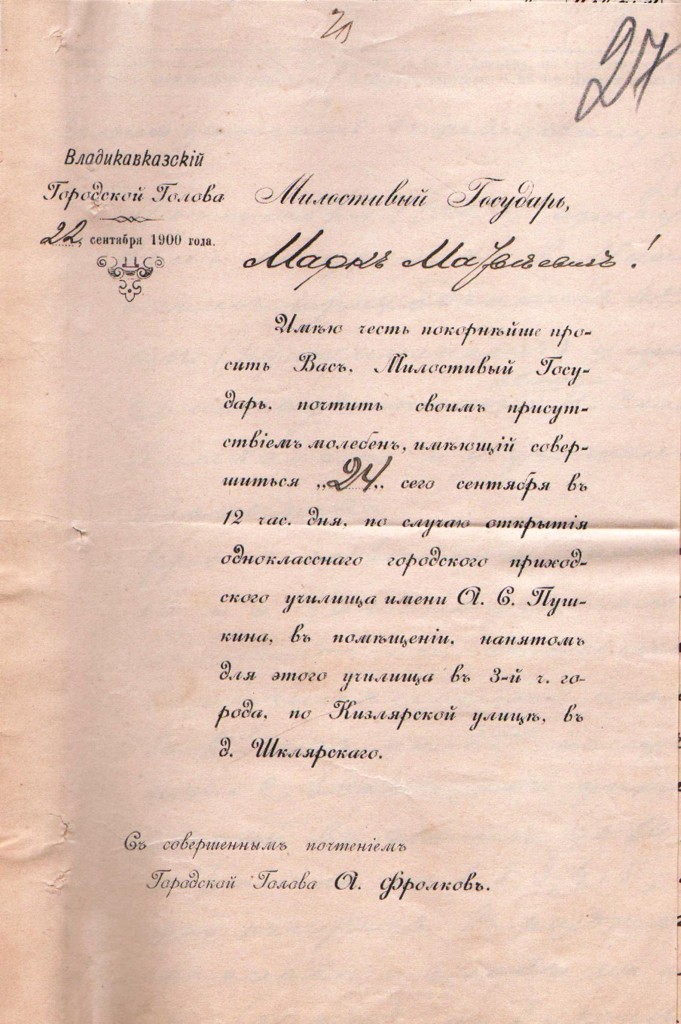 27
Владикавказскій
Городской Голова
22 сентября 1900 года.
Милостивый Государь,
Маркъ Матвѣевичъ!
Имѣю честь покорнѣйше про-
сить Васъ, Милостивый Госу-
дарь, почтить своимъ присут-
ствіемъ молебенъ, имѣющій совер-
шиться „24„ сего сентября въ
12 час. дня, по случаю открытія
однокласснаго городского приход-
ского училища имени А. С. Пуш-
кина, въ помѣщеніи, нанятомъ
для этого училища въ 3-й ч. го-
рода, по Кизлярской улицѣ, въ
д. Шклярскаго.
Съ совершеннымъ почтеніемъ
Городской Голова А. Фролковъ.